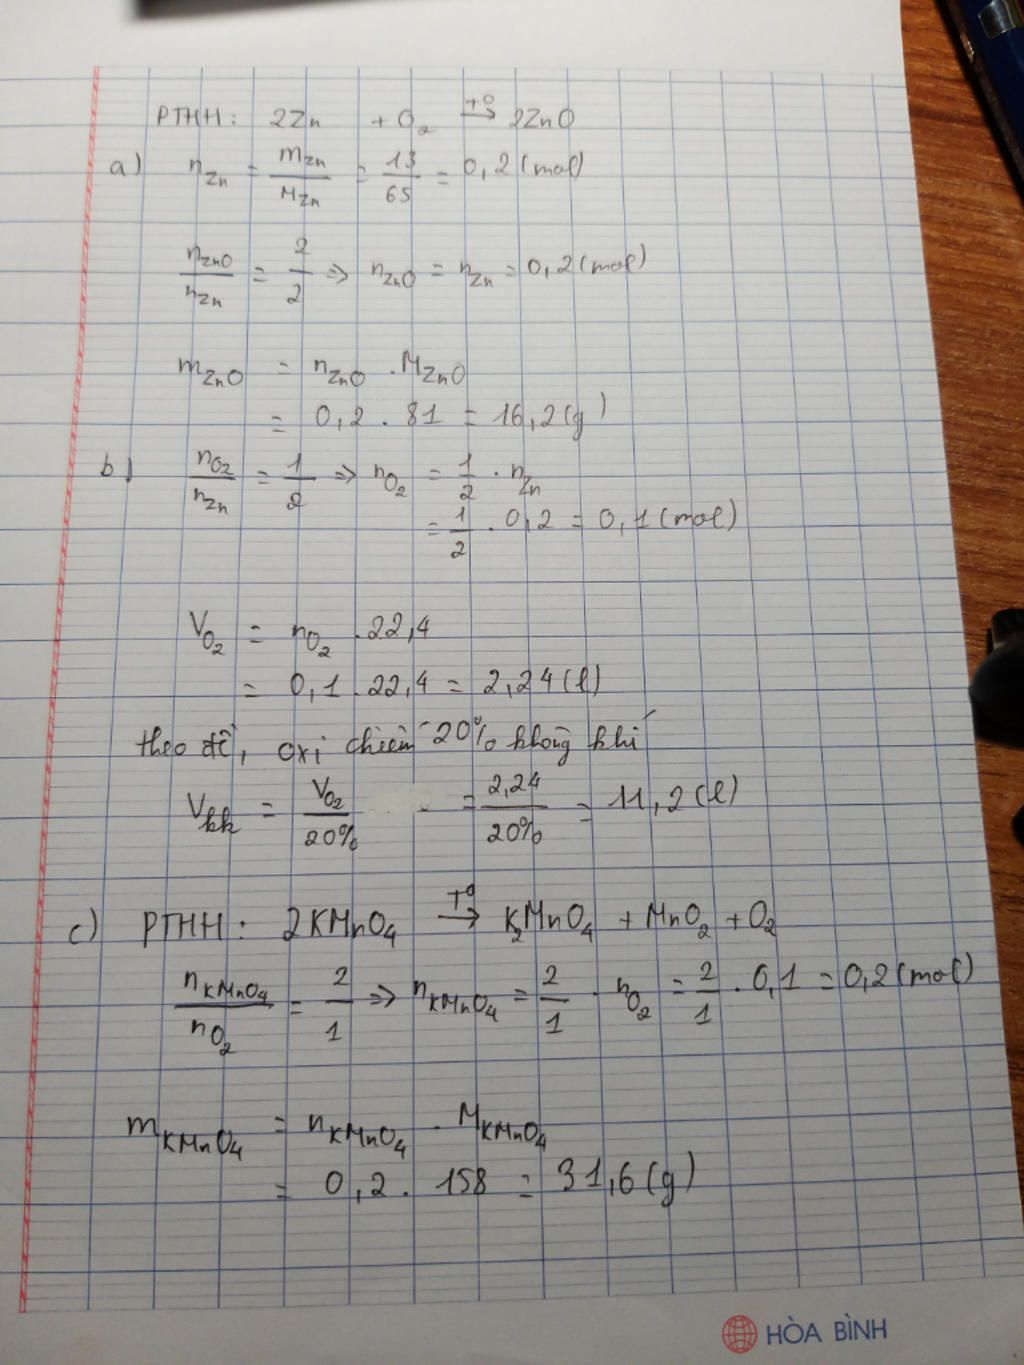 PTHH: 2Zn + O₂ →(T⁰) 2ZnO
a) n_Zn = m_Zn/M_Zn = 13/65 = 0,2 (mol)
n_ZnO/n_Zn = 2/2 ⇒ n_ZnO = n_Zn = 0,2 (mol)
m_ZnO = n_ZnO . M_ZnO
= 0,2 . 81 = 16,2 (g)
b) n_O₂/n_Zn = 1/2 ⇒ n_O₂ = 1/2 . n_Zn
= 1/2 . 0,2 = 0,1 (mol)
V_O₂ = n_O₂ . 22,4
= 0,1 . 22,4 = 2,24 (l)
theo đề, oxi chiếm 20% không khí
V_kk = V_O₂/20% = 2,24/20% = 11,2 (l)
c) PTHH: 2KMnO₄ →(T⁰) K₂MnO₄ + MnO₂ + O₂
n_KMnO₄/n_O₂ = 2/1 ⇒ n_KMnO₄ = 2/1 . n_O₂ = 2/1 . 0,1 = 0,2 (mol)
m_KMnO₄ = n_KMnO₄ . M_KMnO₄
= 0,2 . 158 = 31,6 (g)
HÒA BÌNH